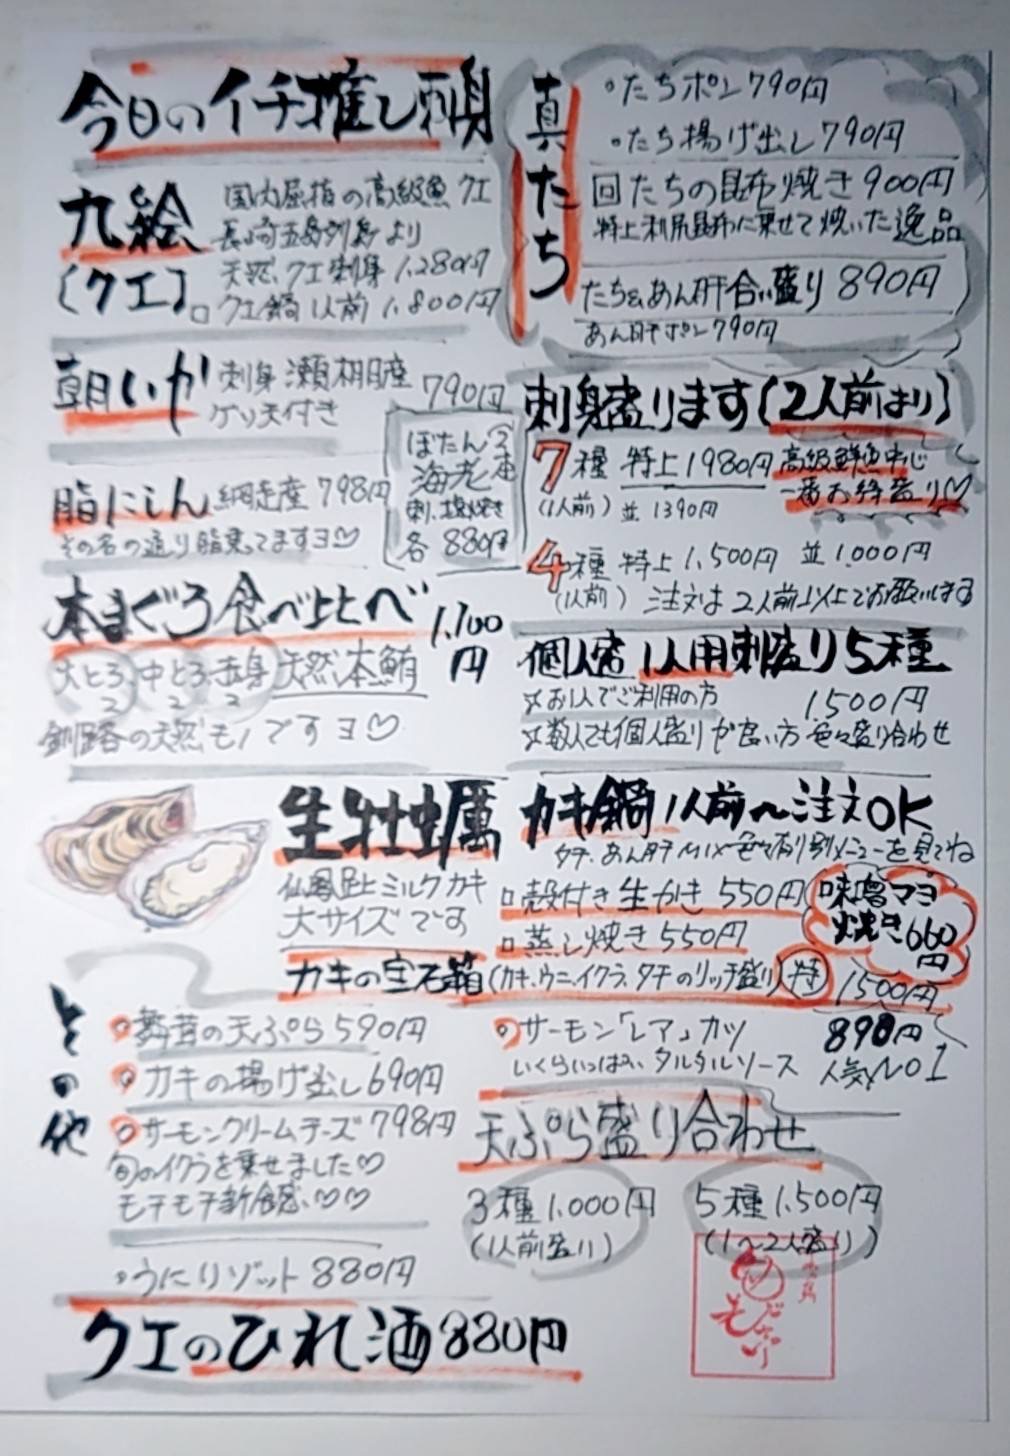 今日のイチ推し刺身
九絵
(クエ)
国内屈指の高級魚クエ
長崎五島列島より
天然クエ刺身 1,280円
□クエ鍋 1人前 1,800円
朝いか
刺身 瀬棚産 790円
ゲソ天付き
脂にしん 網走産 798円
その名の通り脂乗ってますヨ♡
ぼたん
海老
刺、塩焼き
各 880円
本まぐろ食べ比べ 1,100円
大とろ2 中とろ2 赤身2 天然本鮪
釧路の天然モノですヨ♡
真たち
○たちポン 790円
○たち揚げ出し 790円
回たちの昆布焼き 900円
特上利尻昆布に乗せて焼いた逸品
たち&あん肝合い盛り 890円
あん肝ポン 790円
刺身盛ります(2人前より)
7種 特上 1980円 高級鮮魚中心
(1人前) 並 1390円 一番お得盛り♡
4種 特上 1,500円 並 1,000円
(1人前) 注文は2人前以上でお願いします
個人盛 1人用刺盛り5種
☆お1人でご利用の方 1500円
☆数人でも個人盛りが良い方 色々盛り合わせ
生牡蠣
仙鳳趾ミルクカキ
大サイズです
カキ鍋 1人前〜注文OK
タチ、あん肝MIX色々有り別メニューを見てね
□殻付き生かき 550円
□蒸し焼き 550円
味噌マヨ
焼き 660円
カキの宝石箱(カキ、ウニ、イクラ、タチのリッチ盛り) 特 1500円
その他
○舞茸の天ぷら 590円
○カキの揚げ出し 690円
○サーモンクリームチーズ 798円
旬のイクラを乗せました♡
モチモチ新食感♡♡
○うにリゾット 880円
○サーモン「レア」カツ 890円
いくらいっぱい タルタルソース 人気No1
天ぷら盛り合わせ
3種 1,000円
(1人前盛り)
5種 1,500円
(1〜2人盛り)
クエのひれ酒 880円